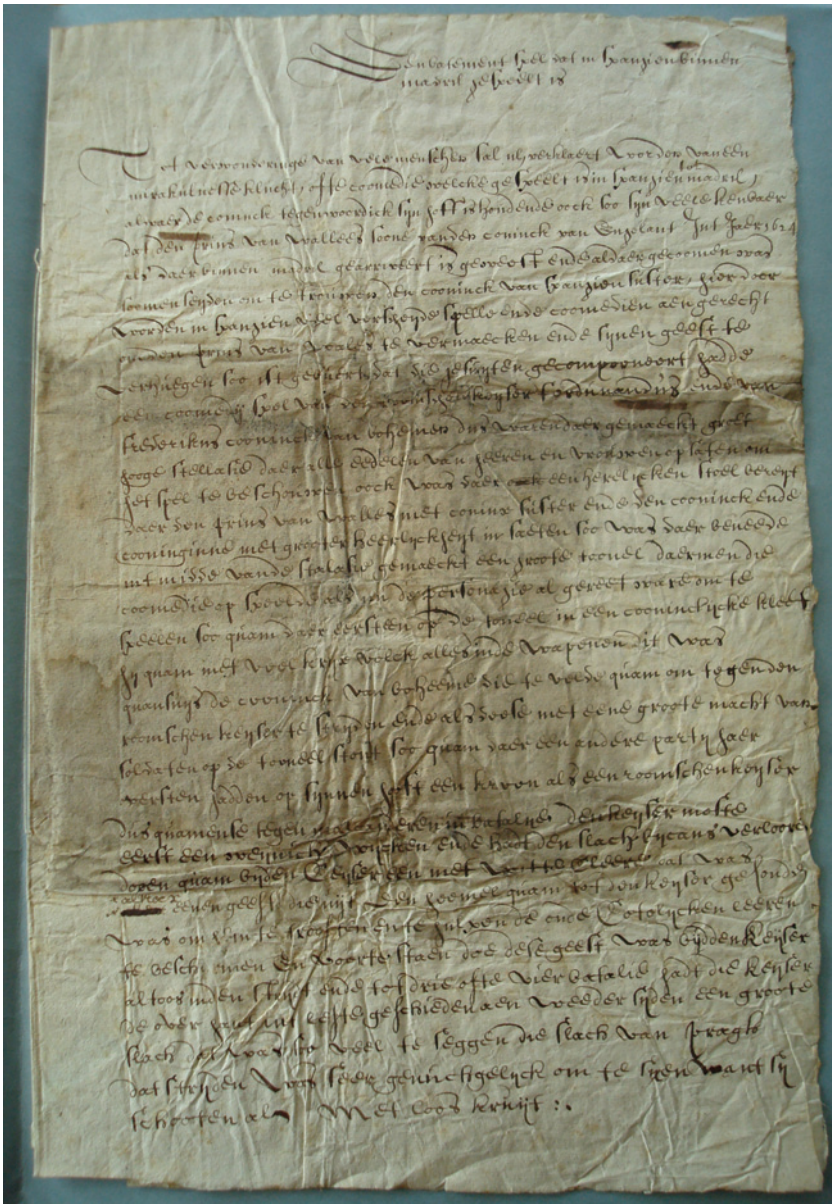 Een batement spel dat in spanzien binnen
madril gespeelt is
Tot verwonderinge van vele menschen sal u verklaert worden van een
mirakuluesse klucht, ofte coomedie welcke gespeelt is in spanzien tot madril,
alwaer de coninck tegenwoordich syn hoff is houdende oock soo syn veele kenbaer
dat den prins van wallees soone vanden coninck van Engelant Int Jaer 1624
als daer binnen madril gearriveert is geweest ende aldaer gecoomen was
soomen seyden om te trouwen den cooninck van spanzien suster, hier door
worden in spanzien veel verscheyde spelle ende coomedien aengerecht
om den prins van Wales te vermaecken ende synen geest te
verhuegen soo ist gebuert dat die jesuyten gecomponeert hadde
een coomedij spel van den roomschen keyser fordinandus ende van
frederikus cooninck van bohemen dus waren daer gemaeckt groote
hooge stellasie daer alle eedelen van heeren en vrouwen op saten om
het spel te beschouwen oock was daer een herelycken stoel bereyt
daer den prins van walles met conincx suster ende den cooninck ende
cooninginne met grooter heerlyckheyt in saeten soo was daer beneede
int midde vande stalasie gemaeckt een groote tooneel daermen die
coomedie op speelde als nu de personazie al gereet ware om te
speelen soo quam daer eersten op de toneel in een cooninclycke kleet
hy quam met veel krijx volck alles inde wapenen dit was
quansuys de cooninck van boheeme die te velde quam om tegen den
roomschen keyser te stryden ende als deese met eene groote macht van
soldaten op de tooneel stont soo quam daer een andere party haer
oversten hadden op synnen hooft een kroon als een roomschen keyser
dus quamense tegen malcanderen in batalie den keyser moste
eerst een weynich wycken ende hadt den slach bycans verlooren
doen quam byden Keyser een met witte cleere dat was
eenen geest die uyt den hoemel quam tot den keyser gesonden
was om hem te troosten en te hulpen de onse Catolycken leeren
te beschermen en voorte staen doe dese geest was bydden keyser
altoos inden stryt ende tot drie ofte vier batalie hadt die keyser
de over hant int leste geschieden aen weeder syden een groote
slach dat was soo veel te seggen die slach van praghe
dat stryden was seer genuchgelyck om te syen want sy
schooten al Met loos kruyt :.